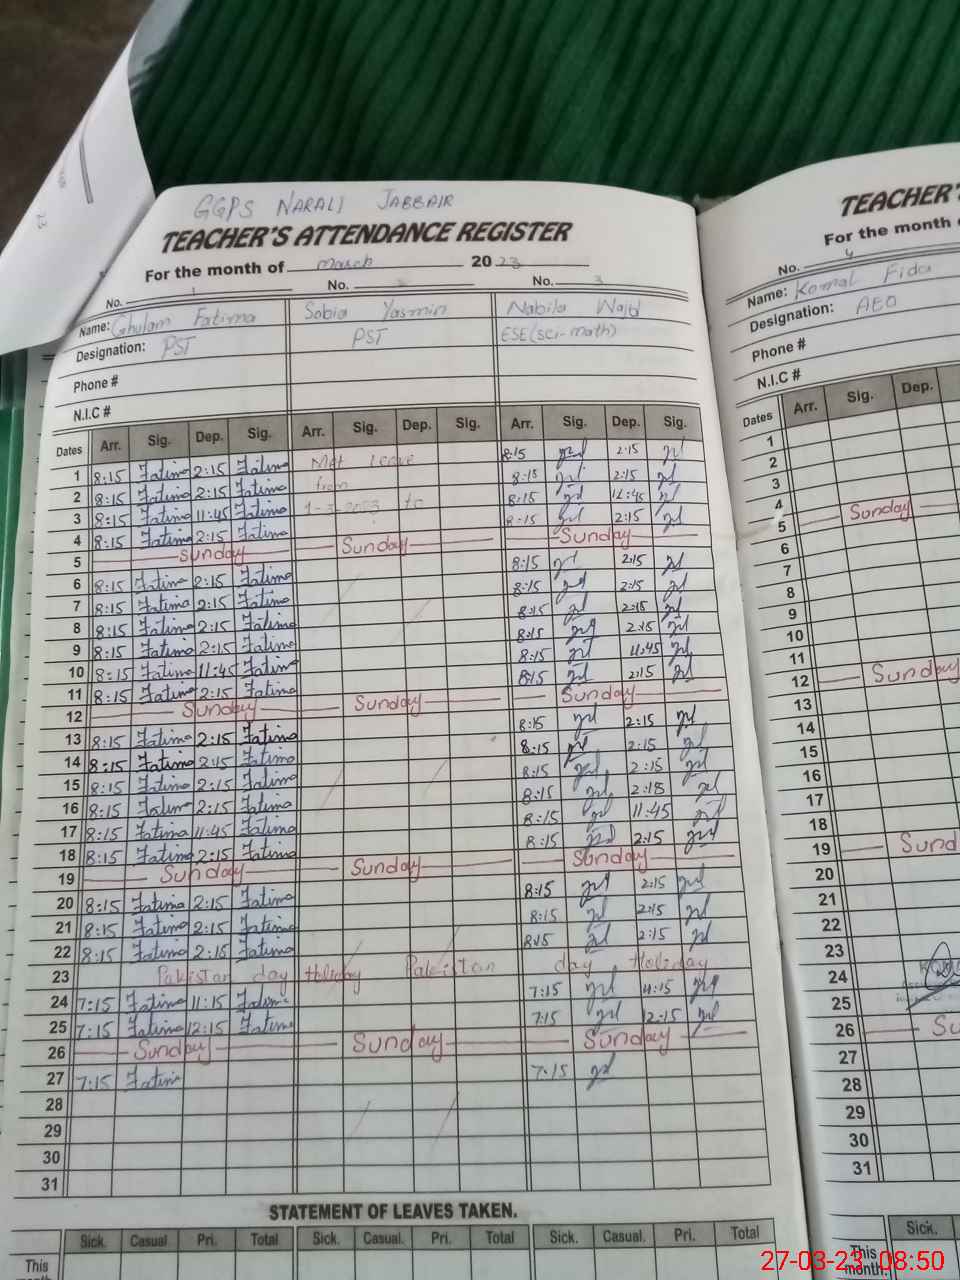 GGPS NARALI JABBAIR
TEACHER'S ATTENDANCE REGISTER
For the month of March 2023
No. 1 No. 2 No. 3
Name: Ghulam Fatima Sobia Yasmin Nabila Wajid
Designation: PST PST ESE (sci-math)
Phone #
N.I.C #
Dates Arr. Sig. Dep. Sig. Arr. Sig. Dep. Sig. Arr. Sig. Dep. Sig.
1 8:15 Fatima 2:15 Fatima Mat leave 8:15 2:15
2 8:15 Fatima 2:15 Fatima from 8:15 2:15
3 8:15 Fatima 11:45 Fatima 1-3-2023 to 8:15 11:45
4 8:15 Fatima 2:15 Fatima 8:15 2:15
5 Sunday Sunday Sunday
6 8:15 Fatima 2:15 Fatima 8:15 2:15
7 8:15 Fatima 2:15 Fatima 8:15 2:15
8 8:15 Fatima 2:15 Fatima 8:15 2:15
9 8:15 Fatima 2:15 Fatima 8:15 2:15
10 8:15 Fatima 11:45 Fatima 8:15 11:45
11 8:15 Fatima 2:15 Fatima 8:15 2:15
12 Sunday Sunday Sunday
13 8:15 Fatima 2:15 Fatima 8:15 2:15
14 8:15 Fatima 2:15 Fatima 8:15 2:15
15 8:15 Fatima 2:15 Fatima 8:15 2:15
16 8:15 Fatima 2:15 Fatima 8:15 2:15
17 8:15 Fatima 11:45 Fatima 8:15 11:45
18 8:15 Fatima 2:15 Fatima 8:15 2:15
19 Sunday Sunday Sunday
20 8:15 Fatima 2:15 Fatima 8:15 2:15
21 8:15 Fatima 2:15 Fatima 8:15 2:15
22 8:15 Fatima 2:15 Fatima 8:15 2:15
23 Pakistan day Holiday Pakistan day Holiday
24 7:15 Fatima 11:15 Fatima 7:15 11:15
25 7:15 Fatima 12:15 Fatima 7:15 12:15
26 Sunday Sunday Sunday
27 7:15 Fatima 7:15
28
29
30
31
STATEMENT OF LEAVES TAKEN.
Sick. Casual Pri. Total Sick. Casual. Pri. Total Sick. Casual. Pri. Total
This
month.
TEACHER'S
For the month
No. 4
Name: Komal Fida
Designation: AEO
Phone #
N.I.C #
Dates Arr. Sig. Dep.
1
2
3
4
5 Sunday
6
7
8
9
10
11
12 Sunday
13
14
15
16
17
18
19 Sund
20
21
22
23
24
25
26 Su
27
28
29
30
31
Sick.
This
month.
27-03-23 08:50